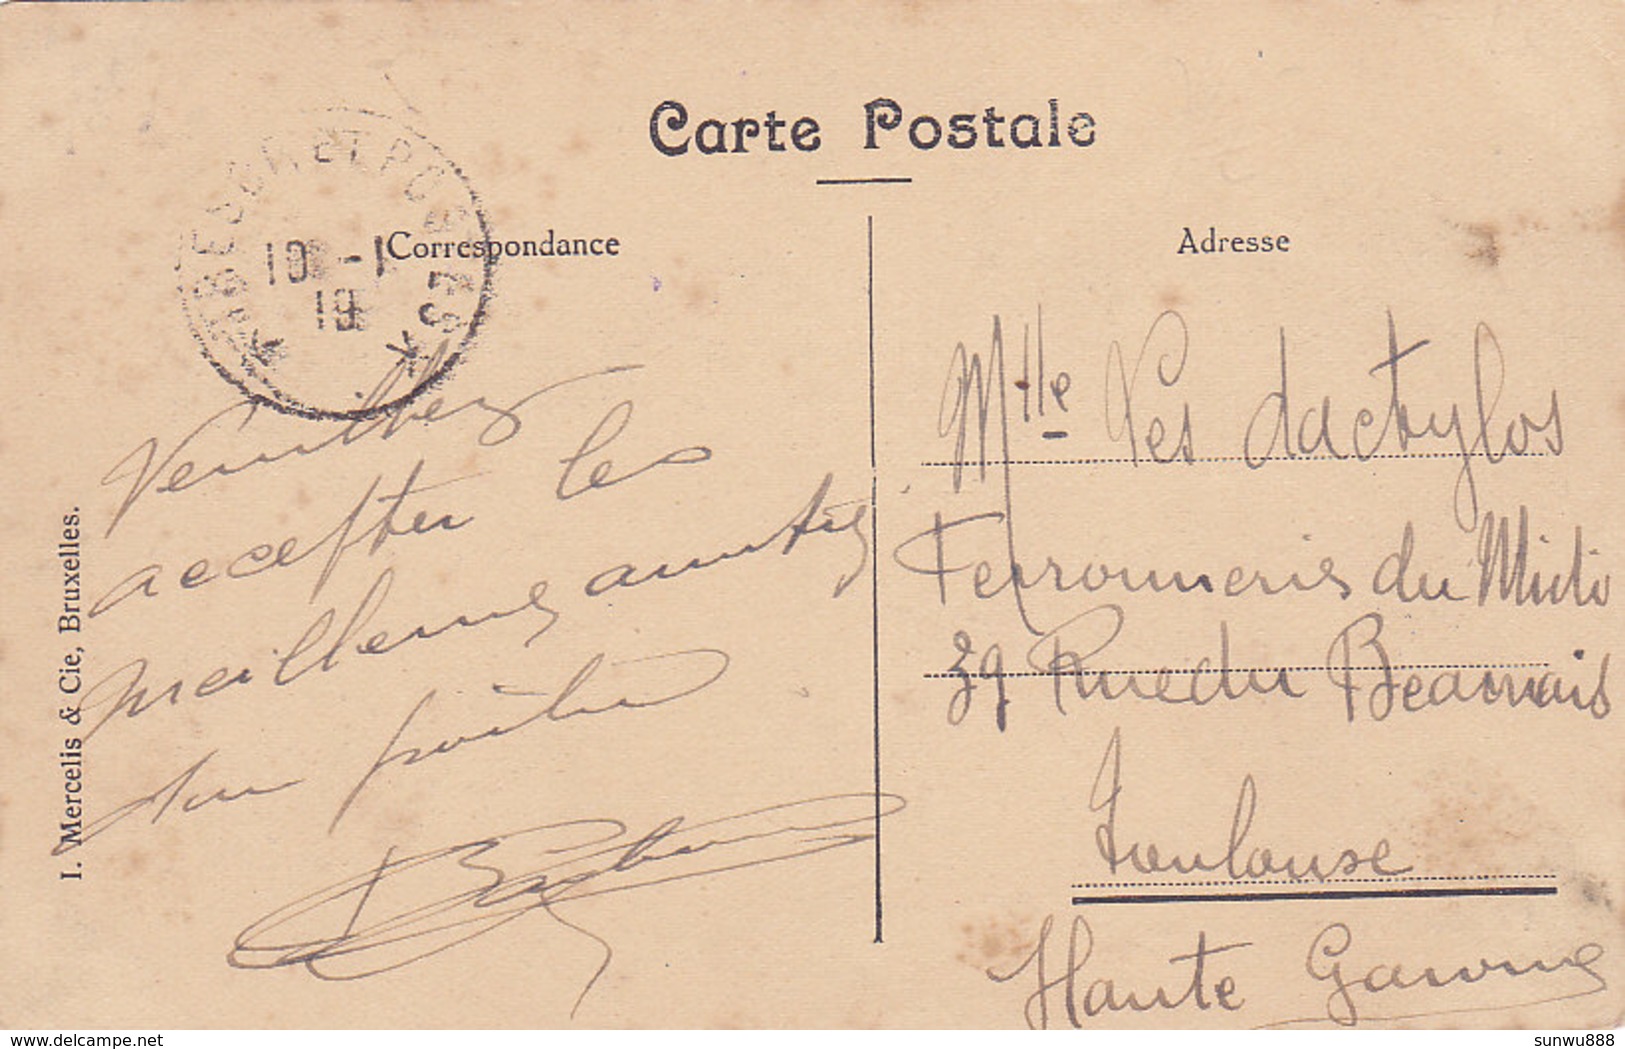 Carte Postale
Correspondance
Adresse
TRESOR ET POSTES
10 -1
19
Veuillez
accepter les
meilleures amitiés
du poilu
Mlle Les dactylos
Ferronnerie du Midi
39 Rue du Bearnais
Toulouse
Haute Garonne
I. Mercelis & Cie, Bruxelles.
delcampe.net
sunwu888